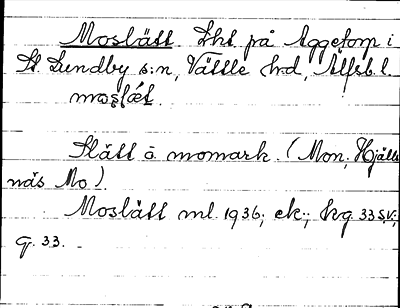 Moslätt. Lht på Aggetorp i
St Lundby s:n, Vättle hrd, Älfsb. l.
mos̩læ̀t.
Slätt å momark. (Mon; Hjälls
näs Mo).
Moslätt ml 1936; ek.; kg 33 SV;
g. 33.